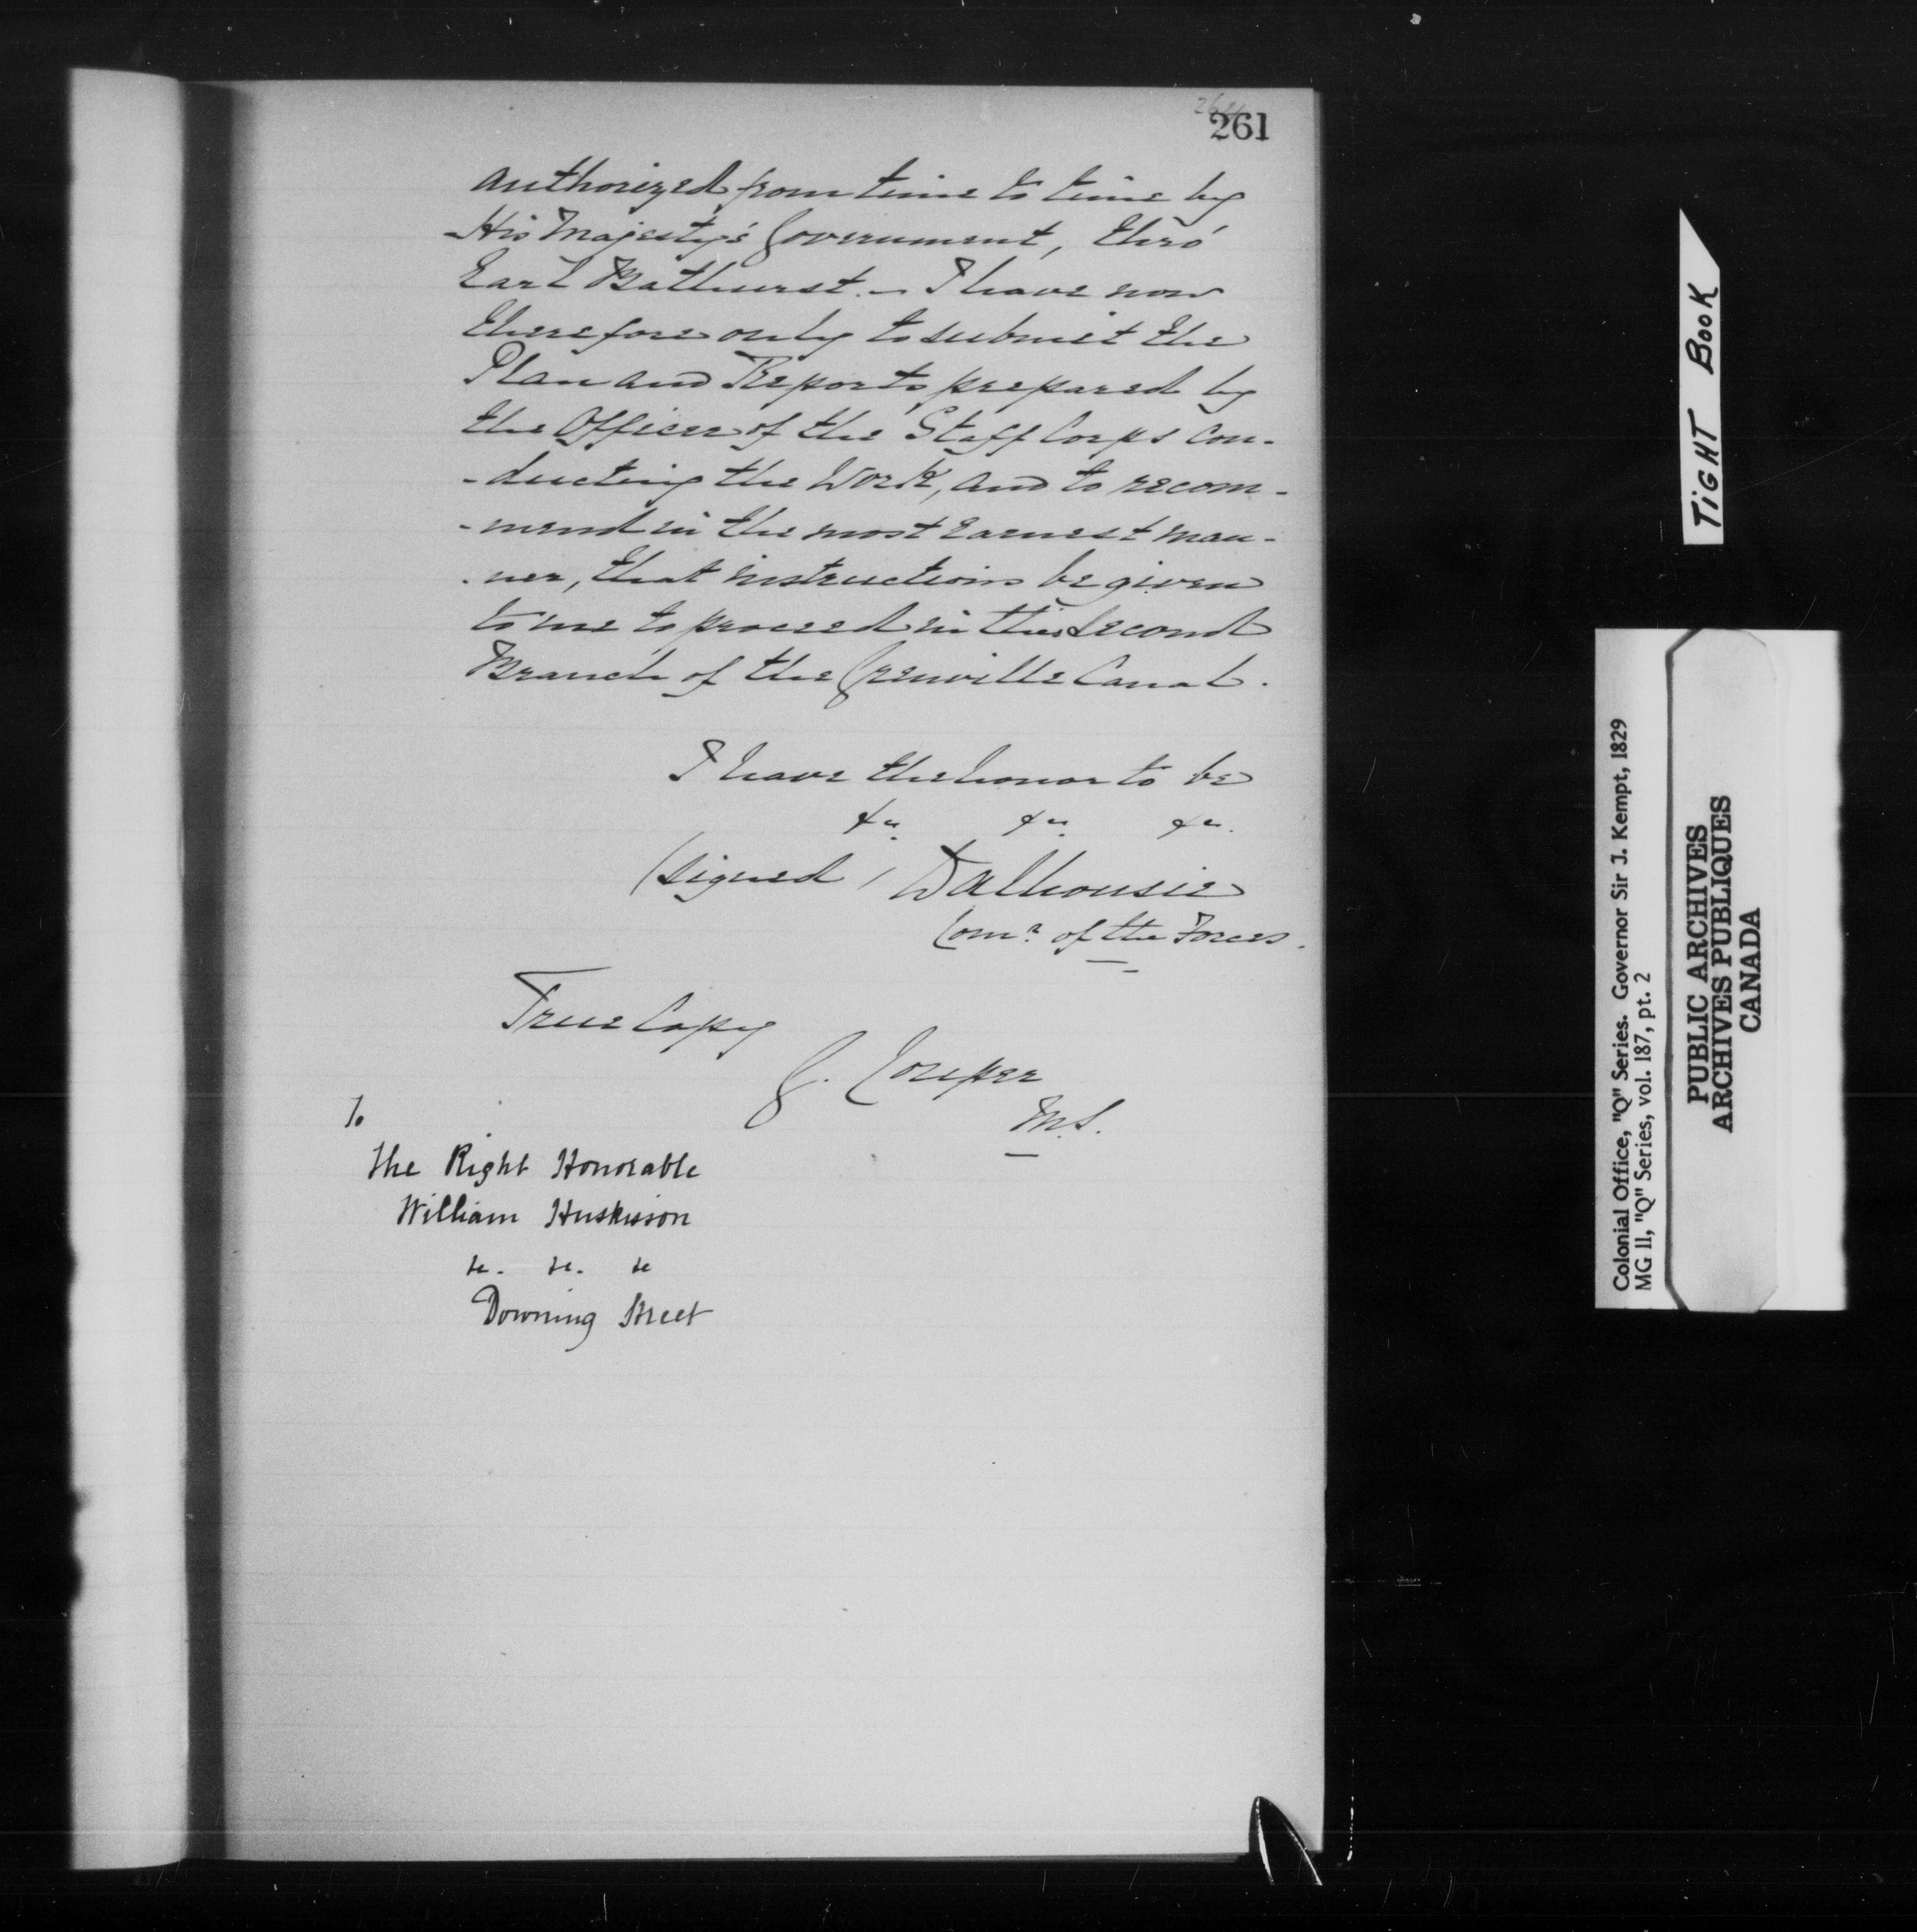 261
authorized from time to time by
His Majesty's Government, thro'
Earl Bathurst. – I have now
therefore only to submit the
Plan and Reports prepared by
the Officer of the Staff Corps con-
-ducting the Work, and to recom-
-mend in the most earnest man-
-ner, that instructions be given
to me to proceed in this second
Branch of the Grenville Canal.
I have the honor to be
&c. &c. &c.
(signed) Dalhousie
Comr. of the Forces.
True Copy
M.S.
To
The Right Honorable
William Huskisson
&c. &c. &c
Downing Street
TIGHT BOOK
Colonial Office, "Q" Series. Governor Sir J. Kempt, 1829
MG 11, "Q" Series, vol. 187, pt. 2
PUBLIC ARCHIVES
ARCHIVES PUBLIQUES
CANADA